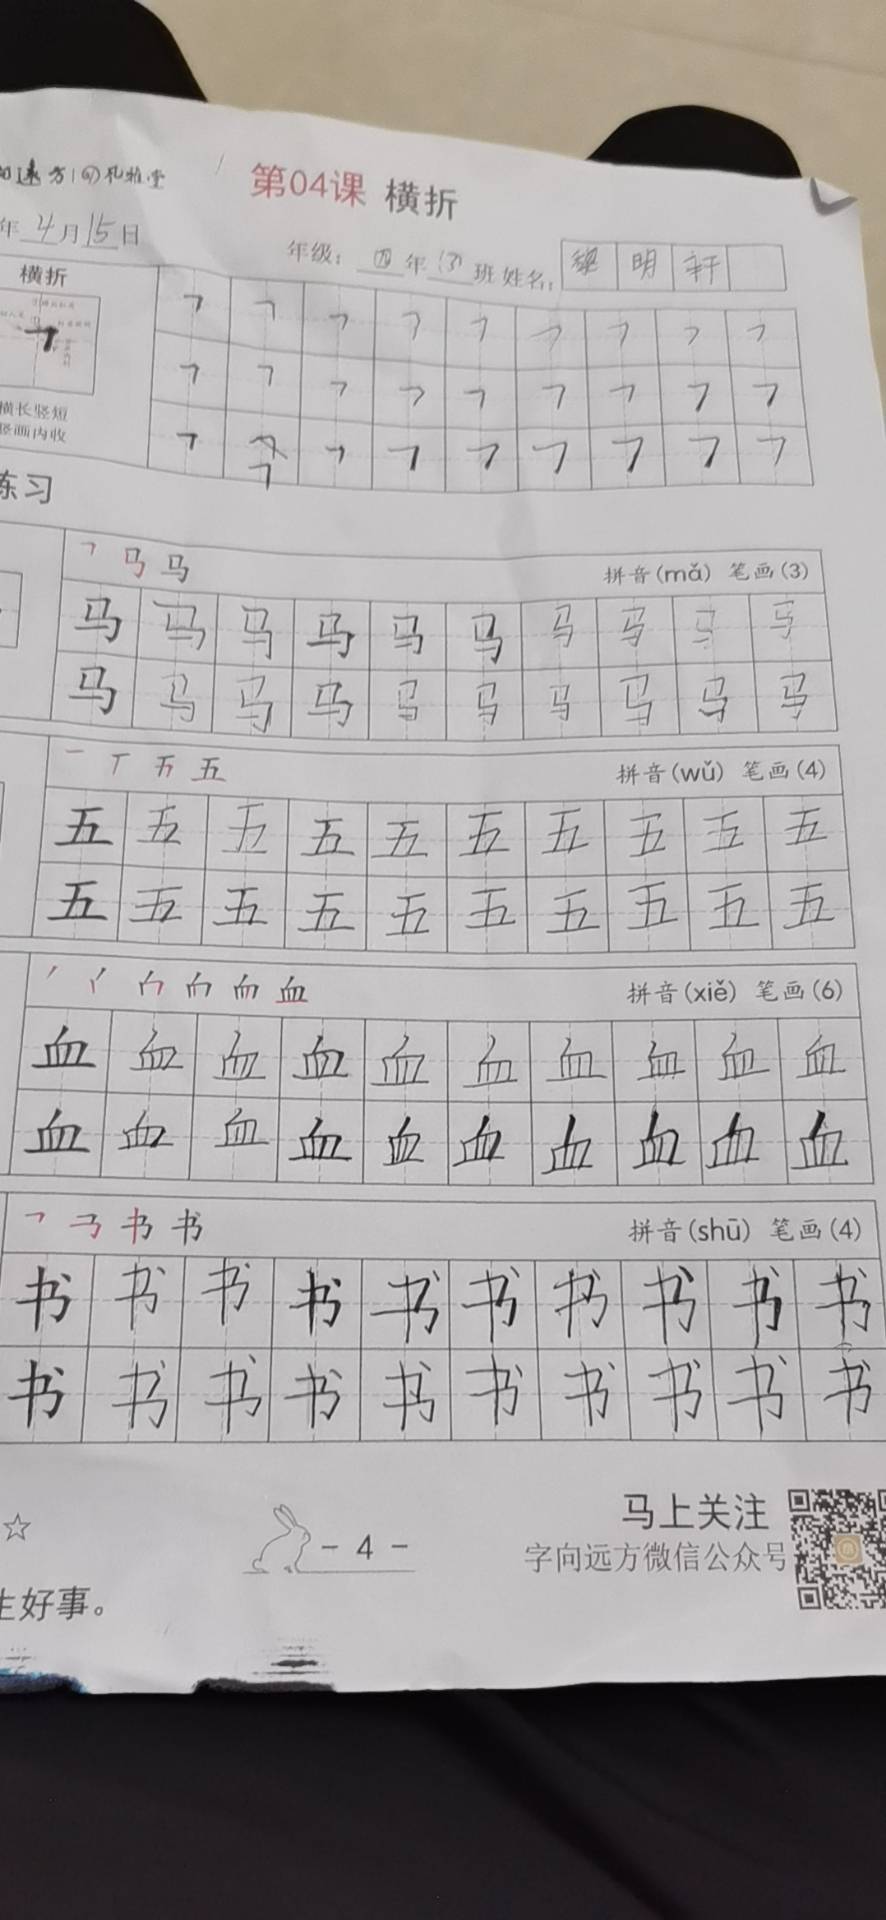 第04课 横折
年 4月15日
年级：四年(3)班 姓名：黎明轩
横折
横长竖短
竖画内收
练习
㇕ 马 马 拼音(mǎ) 笔画(3)
马 马 马 马 马 马 马 马 马 马
马 马 马 马 马 马 马 马 马 马
一 丅 五 五 拼音(wǔ) 笔画(4)
五 五 五 五 五 五 五 五 五 五
五 五 五 五 五 五 五 五 五 五
血 拼音(xiě) 笔画(6)
血 血 血 血 血 血 血 血 血 血
血 血 血 血 血 血 血 血 血 血
㇕ 书 书 拼音(shū) 笔画(4)
书 书 书 书 书 书 书 书 书 书
书 书 书 书 书 书 书 书 书 书
马上关注
- 4 -
字向远方微信公众号
生好事。